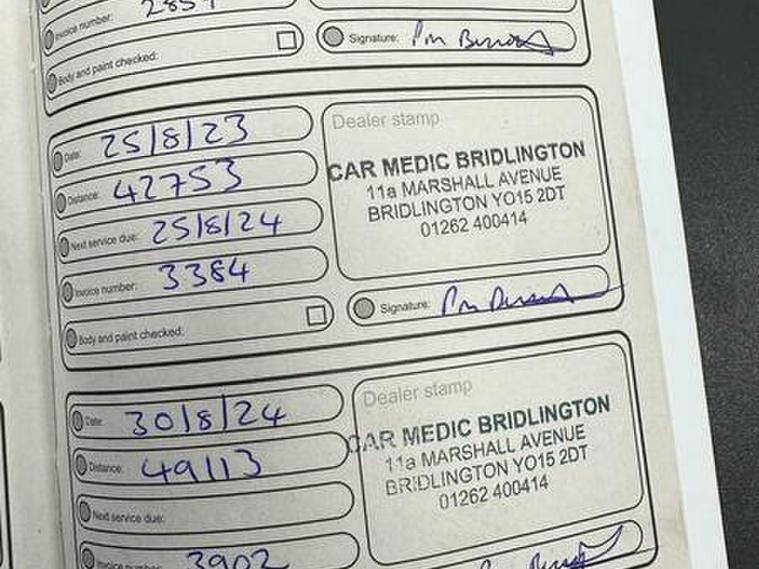 Invoice number:
Signature:
Body and paint checked:
Date: 25/8/23
Distance: 42753
Next service due: 25/8/24
Invoice number: 3384
Body and paint checked:
Dealer stamp
CAR MEDIC BRIDLINGTON
11a MARSHALL AVENUE
BRIDLINGTON YO15 2DT
01262 400414
Signature:
Date: 30/8/24
Distance: 49113
Next service due:
Invoice number 3902
Dealer stamp
CAR MEDIC BRIDLINGTON
11a MARSHALL AVENUE
BRIDLINGTON YO15 2DT
01262 400414